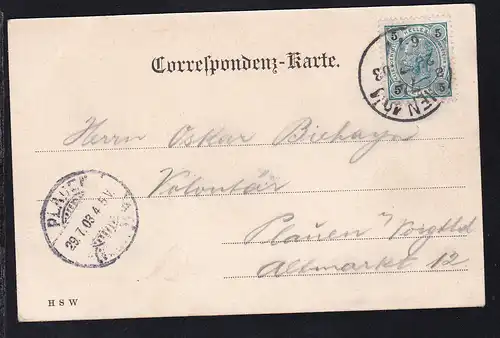 Correspondenz-Karte.
5 5
5 5
WIEN
Herrn Oskar
Volontär
Plauen Vogtld
Altmarkt 12
PLAUEN
29.7.03.4-5V.
H S W